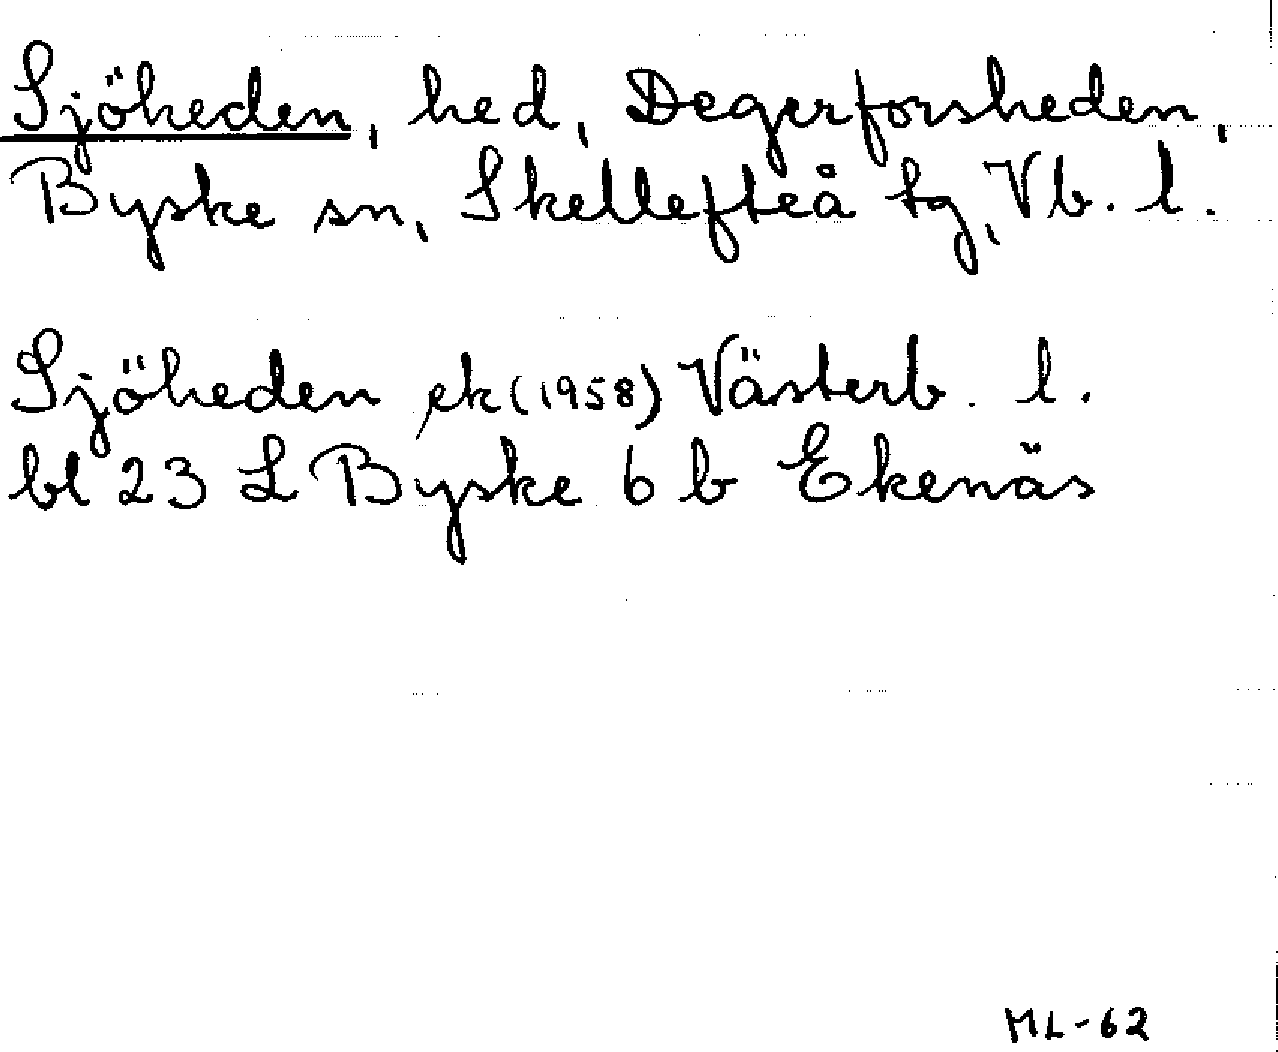 Sjöheden, hed, Degerforsheden,
Byske sn, Skellefteå tg, Vb. l.
Sjöheden ek (1958) Västerb. l.
bl 23 L Byske 6 b Ekenäs
ML-62